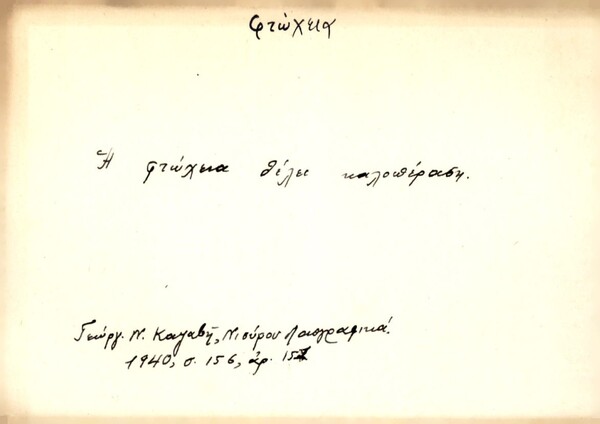 φτώχεια
Ἡ φτώχεια θέλει καλοπέραση.
Γεώργ. Ν. Καζαβῆ, Νισύρου Λαογραφικά.
1940, σ. 156, ἀρ.